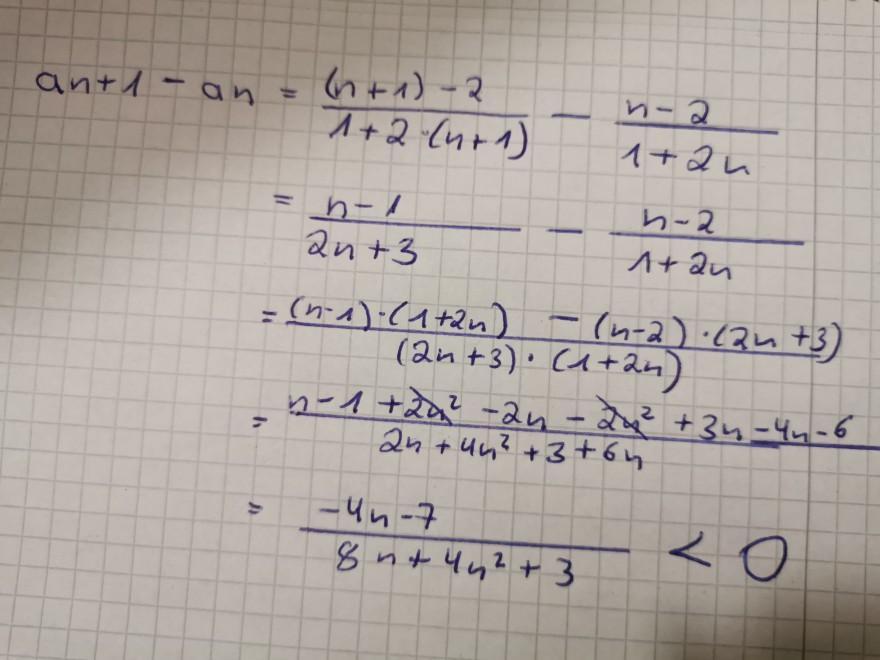 an+1 - an = (n+1) - 2 / 1+2·(n+1) - n-2 / 1+2n
= n-1 / 2n+3 - n-2 / 1+2n
= (n-1)·(1+2n) - (n-2)·(2n+3) / (2n+3)·(1+2n)
= n-1+2n² -2n - 2n² +3n -4n-6 / 2n+4n²+3+6n
= -4n-7 / 8n+4n²+3 < 0